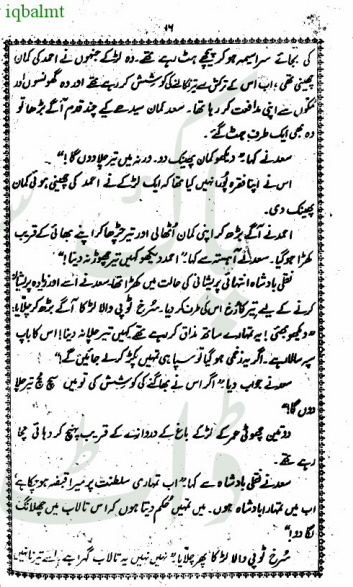 iqbalmt
۱۶
کی بجائے سراسیمہ ہو کر پیچھے ہٹ رہے تھے۔ وہ لڑکے جنہوں نے احمد کی کمان
چھینی تھی، اب اس کے ترکش سے تیر نکالنے کی کوشش کر رہے تھے اور وہ گھونسوں اور
مکوں سے اپنی مدافعت کر رہا تھا۔ سعد کمان سیدھی کیے چند قدم آگے بڑھا تو
وہ بھی ایک طرف ہٹ گئے۔
سعد نے کہا "دیکھو کمان پھینک دو۔ ورنہ میں تیر چلا دوں گا!"
اس نے اپنا فقرہ پورا نہیں کیا تھا کہ ایک لڑکے نے احمد کی چھینی ہوئی کمان
پھینک دی۔
احمد نے آگے بڑھ کر اپنی کمان اٹھالی اور تیر چڑھا کر اپنے بھائی کے قریب
کھڑا ہو گیا۔ سعد نے آہستہ سے کہا "احمد دیکھو کہیں تیر چھوڑ نہ دینا!"
نقلی بادشاہ انتہائی پریشانی کی حالت میں کھڑا تھا، سعد نے اسے اور زیادہ پریشان
کرنے کے لیے تیر کا رخ اس کی طرف کر دیا۔ سرخ ٹوپی والا لڑکا آگے بڑھ کر چلایا:
"دیکھو بھئی! یہ تمہارے ساتھ مذاق کر رہے تھے کہیں تیر چلا نہ دینا! اس کا باپ
سپہ سالار ہے۔ اگر یہ زخمی ہو گیا تو سپاہی تمہیں پکڑ کر لے جائیں گے!"
سعد نے جواب دیا "اگر اس نے بھاگنے کی کوشش کی تو میں سچ مچ تیر چلا
دوں گا!"
دو تین چھوٹی عمر کے لڑکے باغ کے دروازے کے قریب پہنچ کر دہائی مچا
رہے تھے۔
سعد نے نقلی بادشاہ سے کہا "اب تمہاری سلطنت پر میرا قبضہ ہو چکا ہے
اب میں تمہارا بادشاہ ہوں۔ میں تمہیں حکم دیتا ہوں کہ اس تالاب میں چھلانگ
لگا دو!"
سرخ ٹوپی والا لڑکا پھر چلایا "نہیں نہیں یہ تالاب گہرا ہے اسے تیرنا نہیں